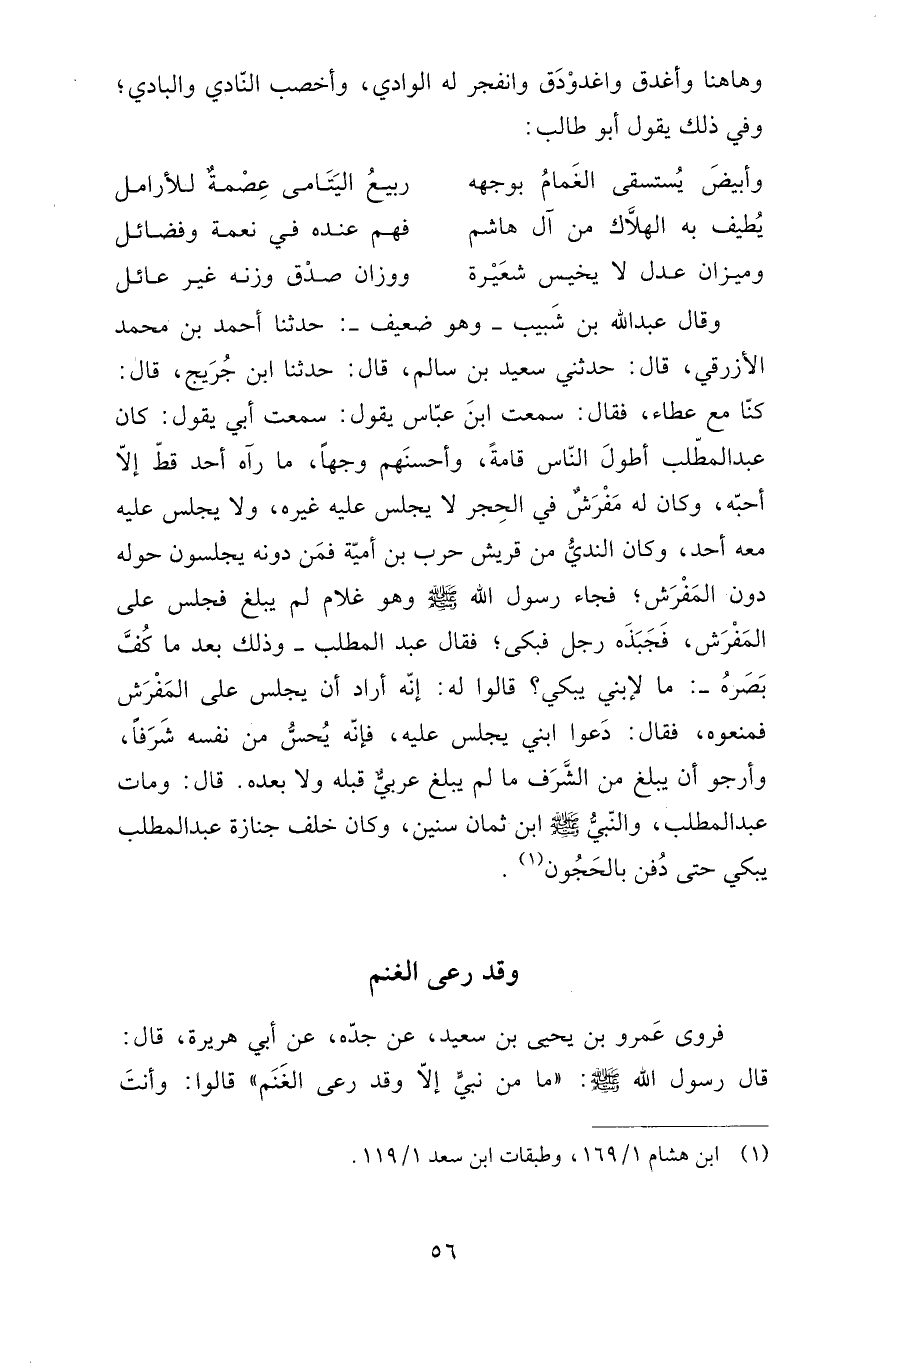 وهاهنا وأغدق واغدوْدَق وانفجر له الوادي، وأخصب النّادي والبادي؛
وفي ذلك يقول أبو طالب:
وأبيضَ يُستسقى الغَمامُ بوجهه ربيعُ اليَتَامى عِصْمةٌ للأرامل
يُطيف به الهلاَّك من آل هاشم فهم عنده في نعمة وفضائل
وميزان عدل لا يخيس شعَيْرة ووزان صدْق وزنه غير عائل
وقال عبدالله بن شَبيب ـ وهو ضعيف ـ: حدثنا أحمد بن محمد
الأزرقي، قال: حدثني سعيد بن سالم، قال: حدثنا ابن جُرَيج، قال:
كنّا مع عطاء، فقال: سمعت ابنَ عبّاس يقول: سمعت أبي يقول: كان
عبدالمطّلب أطولَ النّاس قامةً، وأحسنَهم وجهاً، ما رآه أحد قطّ إلاّ
أحبّه، وكان له مَفْرَشٌ في الحِجر لا يجلس عليه غيره، ولا يجلس عليه
معه أحد، وكان النديُّ من قريش حرب بن أميّة فمَن دونه يجلسون حوله
دون المَفْرَش؛ فجاء رسول الله ﷺ وهو غلام لم يبلغ فجلس على
المَفْرَش، فَجَبَذَه رجل فبكى؛ فقال عبد المطلب ـ وذلك بعد ما كُفَّ
بَصَرهُ ـ: ما لإبني يبكي؟ قالوا له: إنّه أراد أن يجلس على المَفْرَش
فمنعوه، فقال: دَعوا ابني يجلس عليه، فإنّه يُحسُّ من نفسه شَرَفاً،
وأرجو أن يبلغ من الشَّرَف ما لم يبلغ عربيٌّ قبله ولا بعده. قال: ومات
عبدالمطلب، والنّبيُّ ﷺ ابن ثمان سنين، وكان خلف جنازة عبدالمطلب
يبكي حتى دُفن بالحَجُون(١).
وقد رعى الغنم
فروى عَمرو بن يحيى بن سعيد، عن جدّه، عن أبي هريرة، قال:
قال رسول الله ﷺ: «ما من نبيٍّ إلاّ وقد رعى الغَنَم» قالوا: وأنتَ
(١) ابن هشام ١/١٦٩، وطبقات ابن سعد ١/١١٩.
٥٦